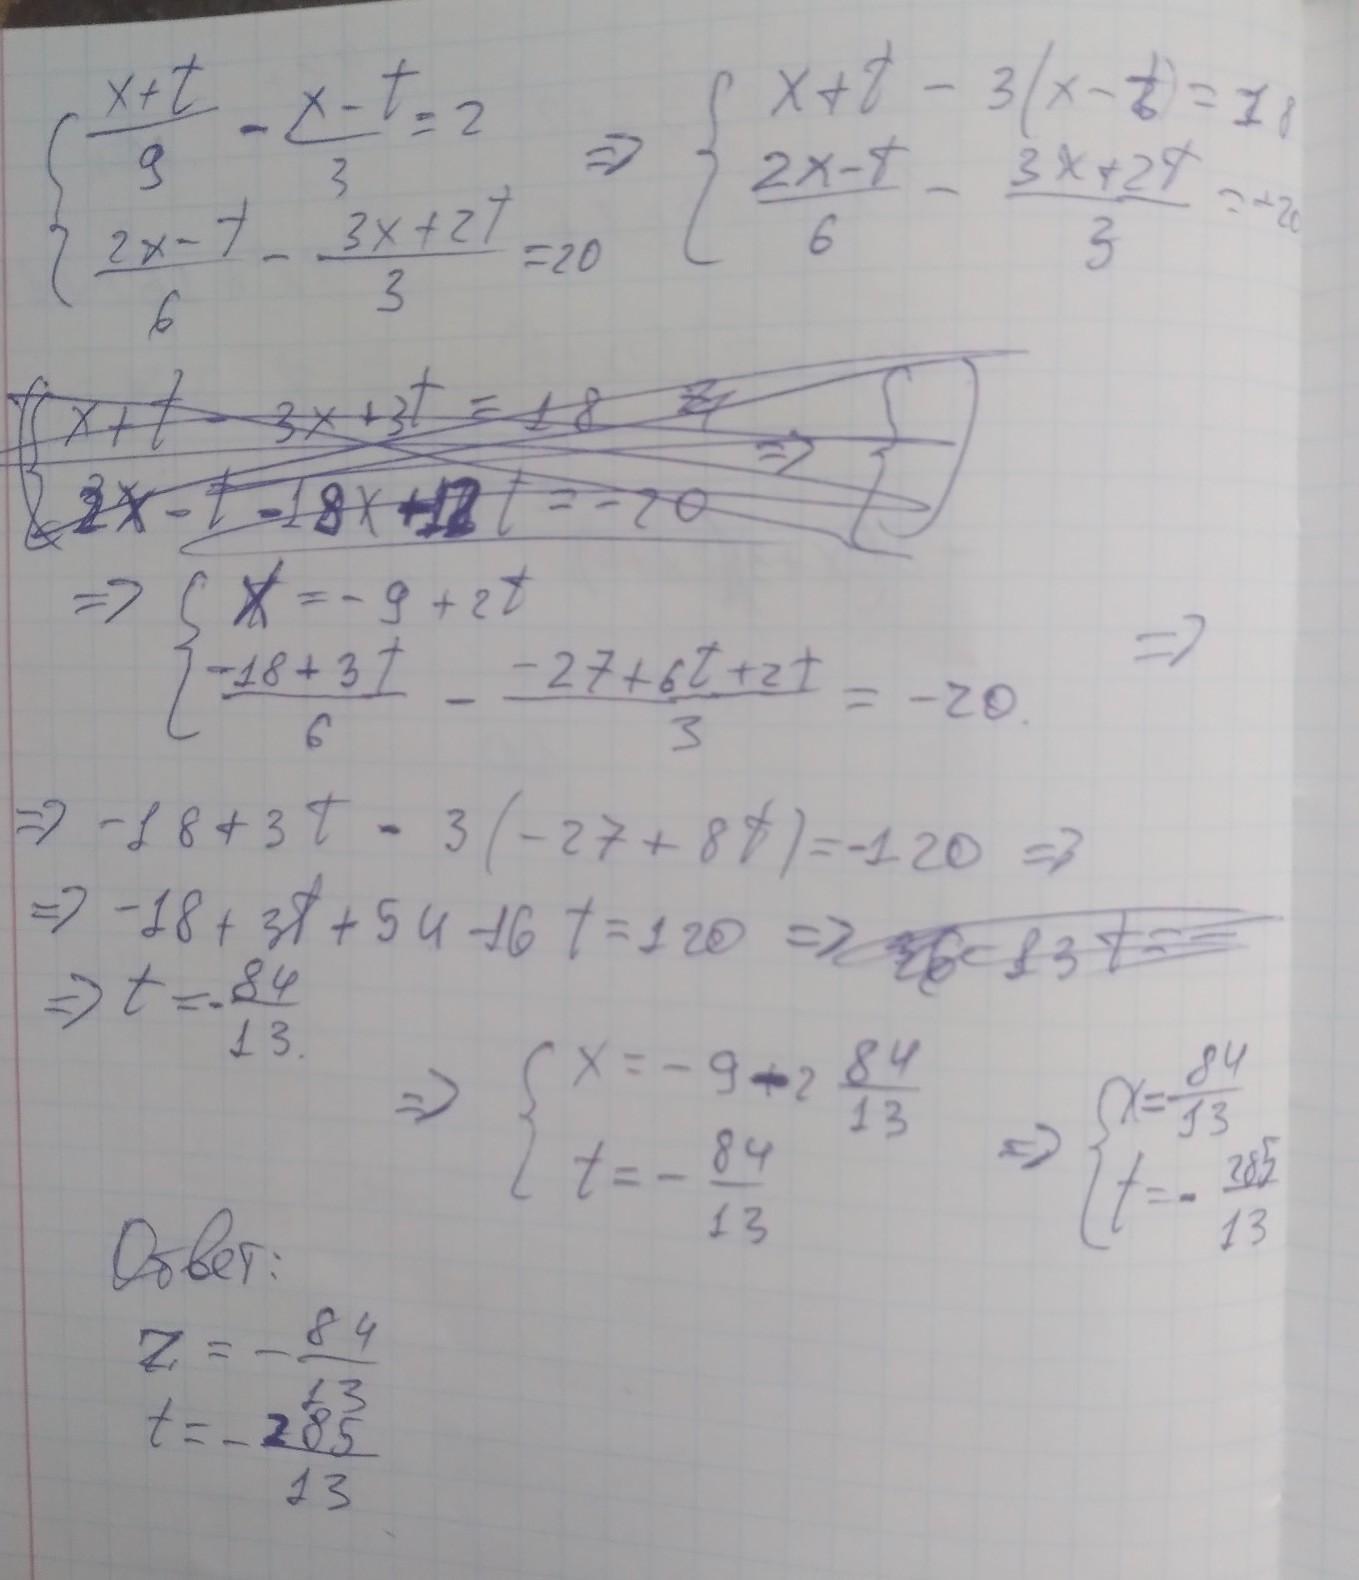 { (x+t)/9 - (x-t)/3 = 2 => { x+t - 3(x-t) = 18
(2x-t)/6 - (3x+2t)/3 = 20 (2x-t)/6 - (3x+2t)/3 = -20
{ x+t - 3x+3t = 18 => {
2x-t -18x+12t = -20
=> { x = -9+2t
(-18+3t)/6 - (-27+6t+2t)/3 = -20. =>
=> -18+3t - 3(-27+8t) = -120 =>
=> -18+3t+54-16t=120 => 36-13t==
=> t=-84/13.
=> { x = -9-2 84/13 => { x=-84/13
t = -84/13 t=-285/13
Ответ:
z = -84/13
t = -285/13